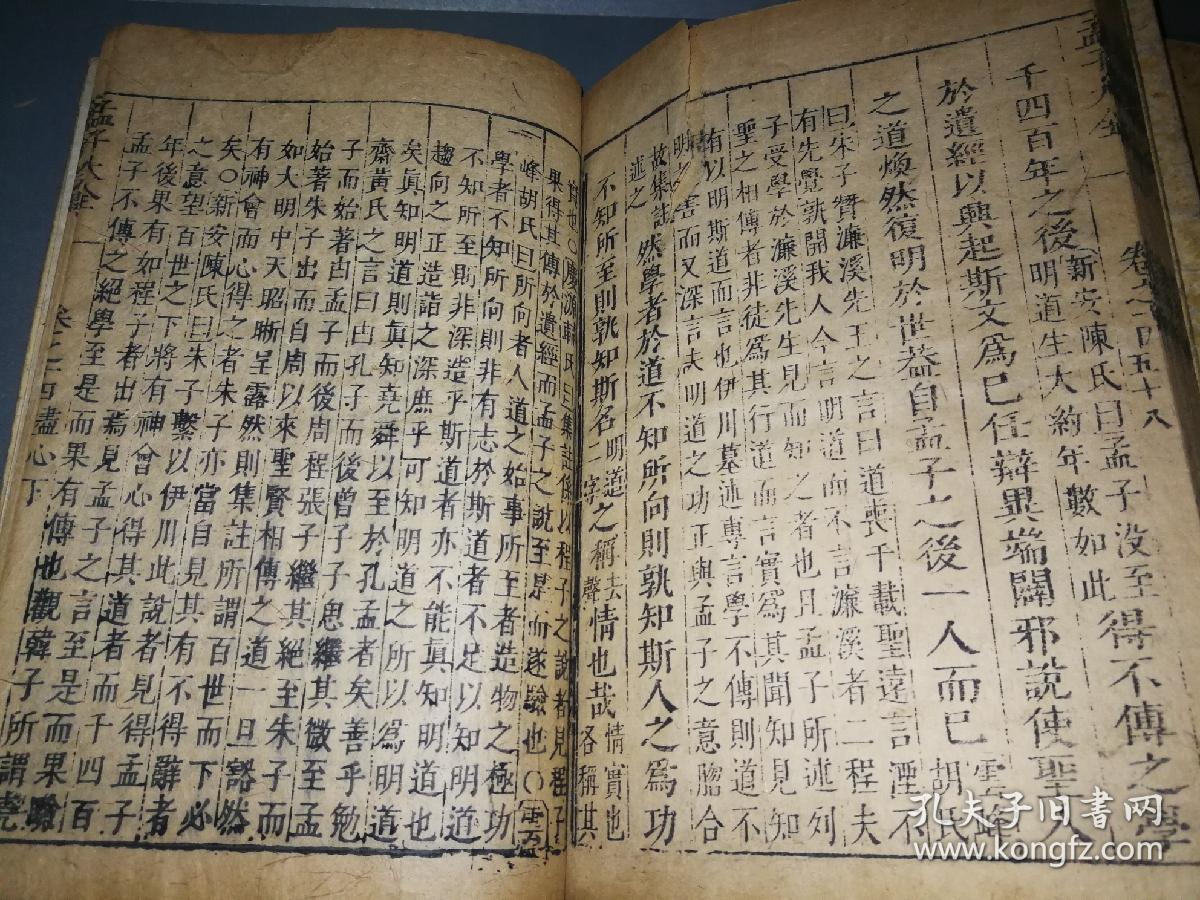 卷之十四五十八
千四百年之後新安陳氏曰孟子没至明道生大約年數如此得不傳之學
於遺經以興起斯文爲已任辯異端闢邪說使聖人
之道煥然復明於世蓋自孟子之後一人而已雲峰胡氏
曰宋子贊濂溪先王之言曰道喪千載聖遠言湮不
有先覺孰開我人今言明道而不言濂溪者二程夫
子受學於濂溪先生見而知之者也且孟子所述列
聖之相傳者非徒爲其行道而言實爲其聞知見知
有以明斯道而言也伊川墓述專言學不傳則道不
明之害而又深言夫明道之功正與孟子之意脗合
故集註述之然學者於道不知所向則孰知斯人之爲功
不知所至則孰知斯名明道二字之稱去聲情也哉情實也名稱其
實也○慶源輔氏曰集註係以程子之說者見程子
果得其傳於遺經而孟子之說至是而遂驗也○雲
峰胡氏曰所向者人道之始事所至者造物之極功
學者不知所向則非有志於斯道者不足以知明道
不知所至則非深造乎斯道者亦不能眞知明道也
趨向之正造詣之深庶乎可知明道之所以爲明道
矣眞知明道則眞知堯舜以至於孔孟者矣善乎勉
齋黃氏之言曰由孔子而後曾子子思繼其微至孟
子而始著由孟子而後周程張子繼其絕至朱子而
始著朱子出而自周以來聖賢相傳之道一旦豁然
如大明中天昭晰呈露然則集註所謂百世而下必
有神會而心得之者朱子亦當自見其有不得辭者
矣○新安陳氏曰朱子繫以伊川此說者見得孟子
之意望百世之下將有神會心得其道者而千四百
年後果有如程子者出焉見孟子之言至是而果驗
孟子不傳之絕學至是而果有傳也觀韓子所謂堯
孟子大全 卷之十四盡心下
孔夫子旧书网
www.kongfz.com